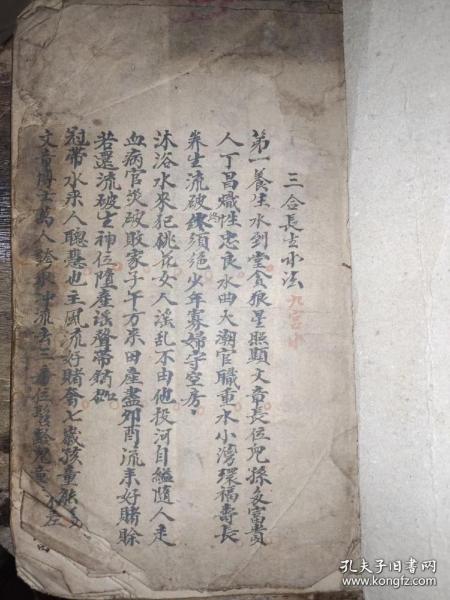 三合長生水法 九宮水
第一養生水到堂貪狼星照顯文章長位兒孫多富貴
人丁昌熾性忠良水曲大潮官職重水小灣環福壽長
养生流破終須絕少年寡婦守空房
沐浴水來犯桃花女人淫乱不由他投河自縊隨人走
血病官災破敗家子午方來田產盡卯酉流來好賭賒
若還流破生神位墮產淫聲帶鎖枷
冠帶水來人聰慧也主風流好賭奢七歲孩童能
文章博士萬人誇水神流去
孔夫子旧书网
www.kongfz.com